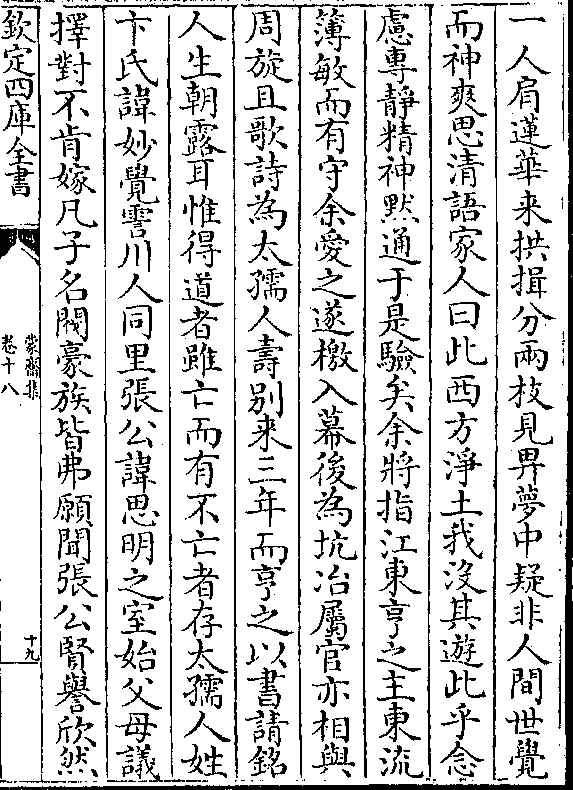 一人肩蓮華来拱揖分兩枝見畀夢中疑非人間世覺
而神爽思清語家人曰此西方淨土我沒其遊此乎念
慮專靜精神默通于是驗矣余將指江東亨之主東流
薄敏而有守余愛之遂檄入幕後為坑冶屬官亦相與
周旋且歌詩為太孺人壽别来三年而亨之以書請銘
人生朝露耳惟得道者雖亡而有不亡者存太孺人姓
卞氏諱妙覺霅川人同里張公諱思明之室始父母議
擇對不肯嫁凡子名閥豪族皆弗願聞張公賢譽欣然
欽定四庫全書
蒙齋集
卷十八
十九